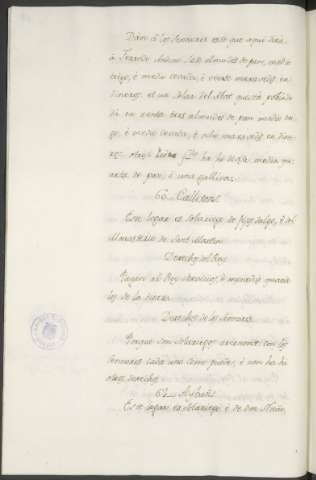 Dan á los Senores este que aqui dirá
á Ferrando Antono seis almudes de pan, medio
trigo, é medio cevada, é veinte maravedis en
dineros. et un Solar del Abat que está poblado
dá en renta tres almudes de pan medio tri-
go, é medio cevada, é ocho maravedis en dine-
ros. otro ha le de dar media qu
arta de pan, é una gallina.
60
Este logar es Solariego de fijosdalgo, é del
Monasterio de Sant Martin
Derechos del Rey
Pagan al Rey servicios, é monedas quando
los de la tierra
Derechos de los Senores
Porque son Solariegos
Senores cada uno como puede, é non ha hi
otros derechos
62
Este logar es Solariego é de Don Nuño,